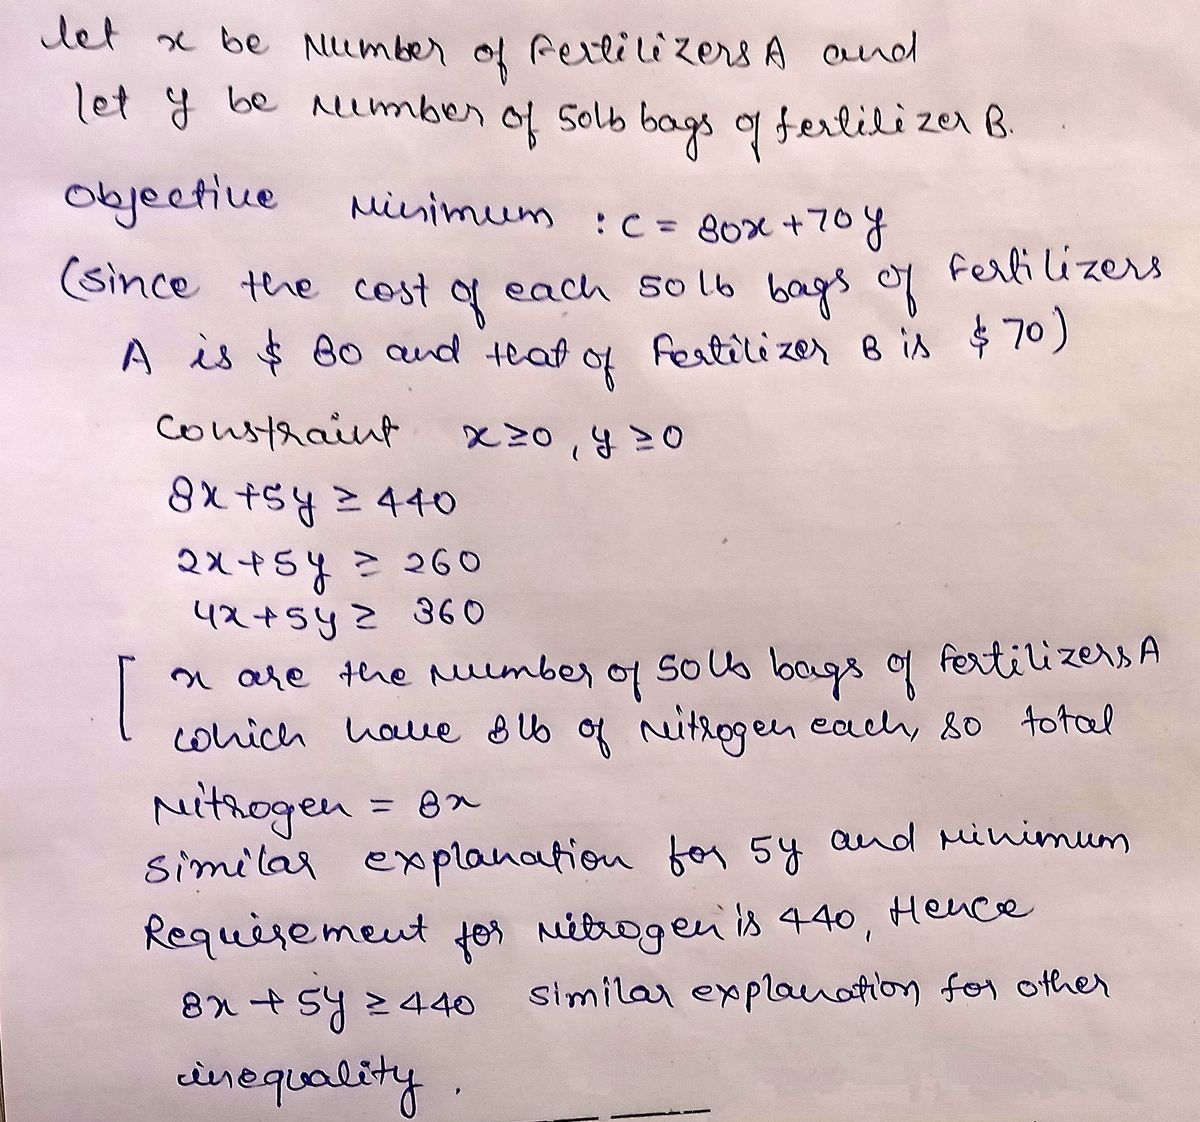 let x be Number of Fertilizers A and
let y be number of 50lb bags of fertilizer B.
Objective Minimum : C = 80x + 70y
(since the cost of each 50 lb bags of Fertilizers
A is $ 80 and that of Fertilizer B is $ 70)
Constraint x ≥ 0, y ≥ 0
8x + 5y ≥ 440
2x + 5y ≥ 260
4x + 5y ≥ 360
[ x are the number of 50 lb bags of Fertilizers A
which have 8 lb of nitrogen each, so total
Nitrogen = 8x
similar explanation for 5y and minimum
Requirement for nitrogen is 440, Hence
8x + 5y ≥ 440 similar explanation for other
inequality.